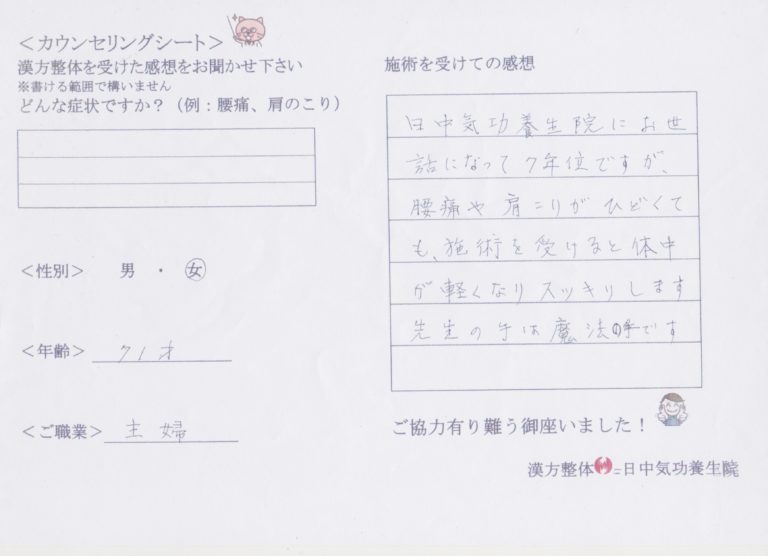 ＜カウンセリングシート＞
漢方整体を受けた感想をお聞かせ下さい
※書ける範囲で構いません
どんな症状ですか？（例：腰痛、肩のこり）
＜性別＞ 男 ・ 女
＜年齢＞ 71才
＜ご職業＞ 主婦
施術を受けての感想
日中気功養生院にお世
話になって7年位ですが、
腰痛や肩こりがひどくて
も、施術を受けると体中
が軽くなりスッキリします
先生の手は魔法の手です
ご協力有り難う御座いました！
漢方整体 日中気功養生院